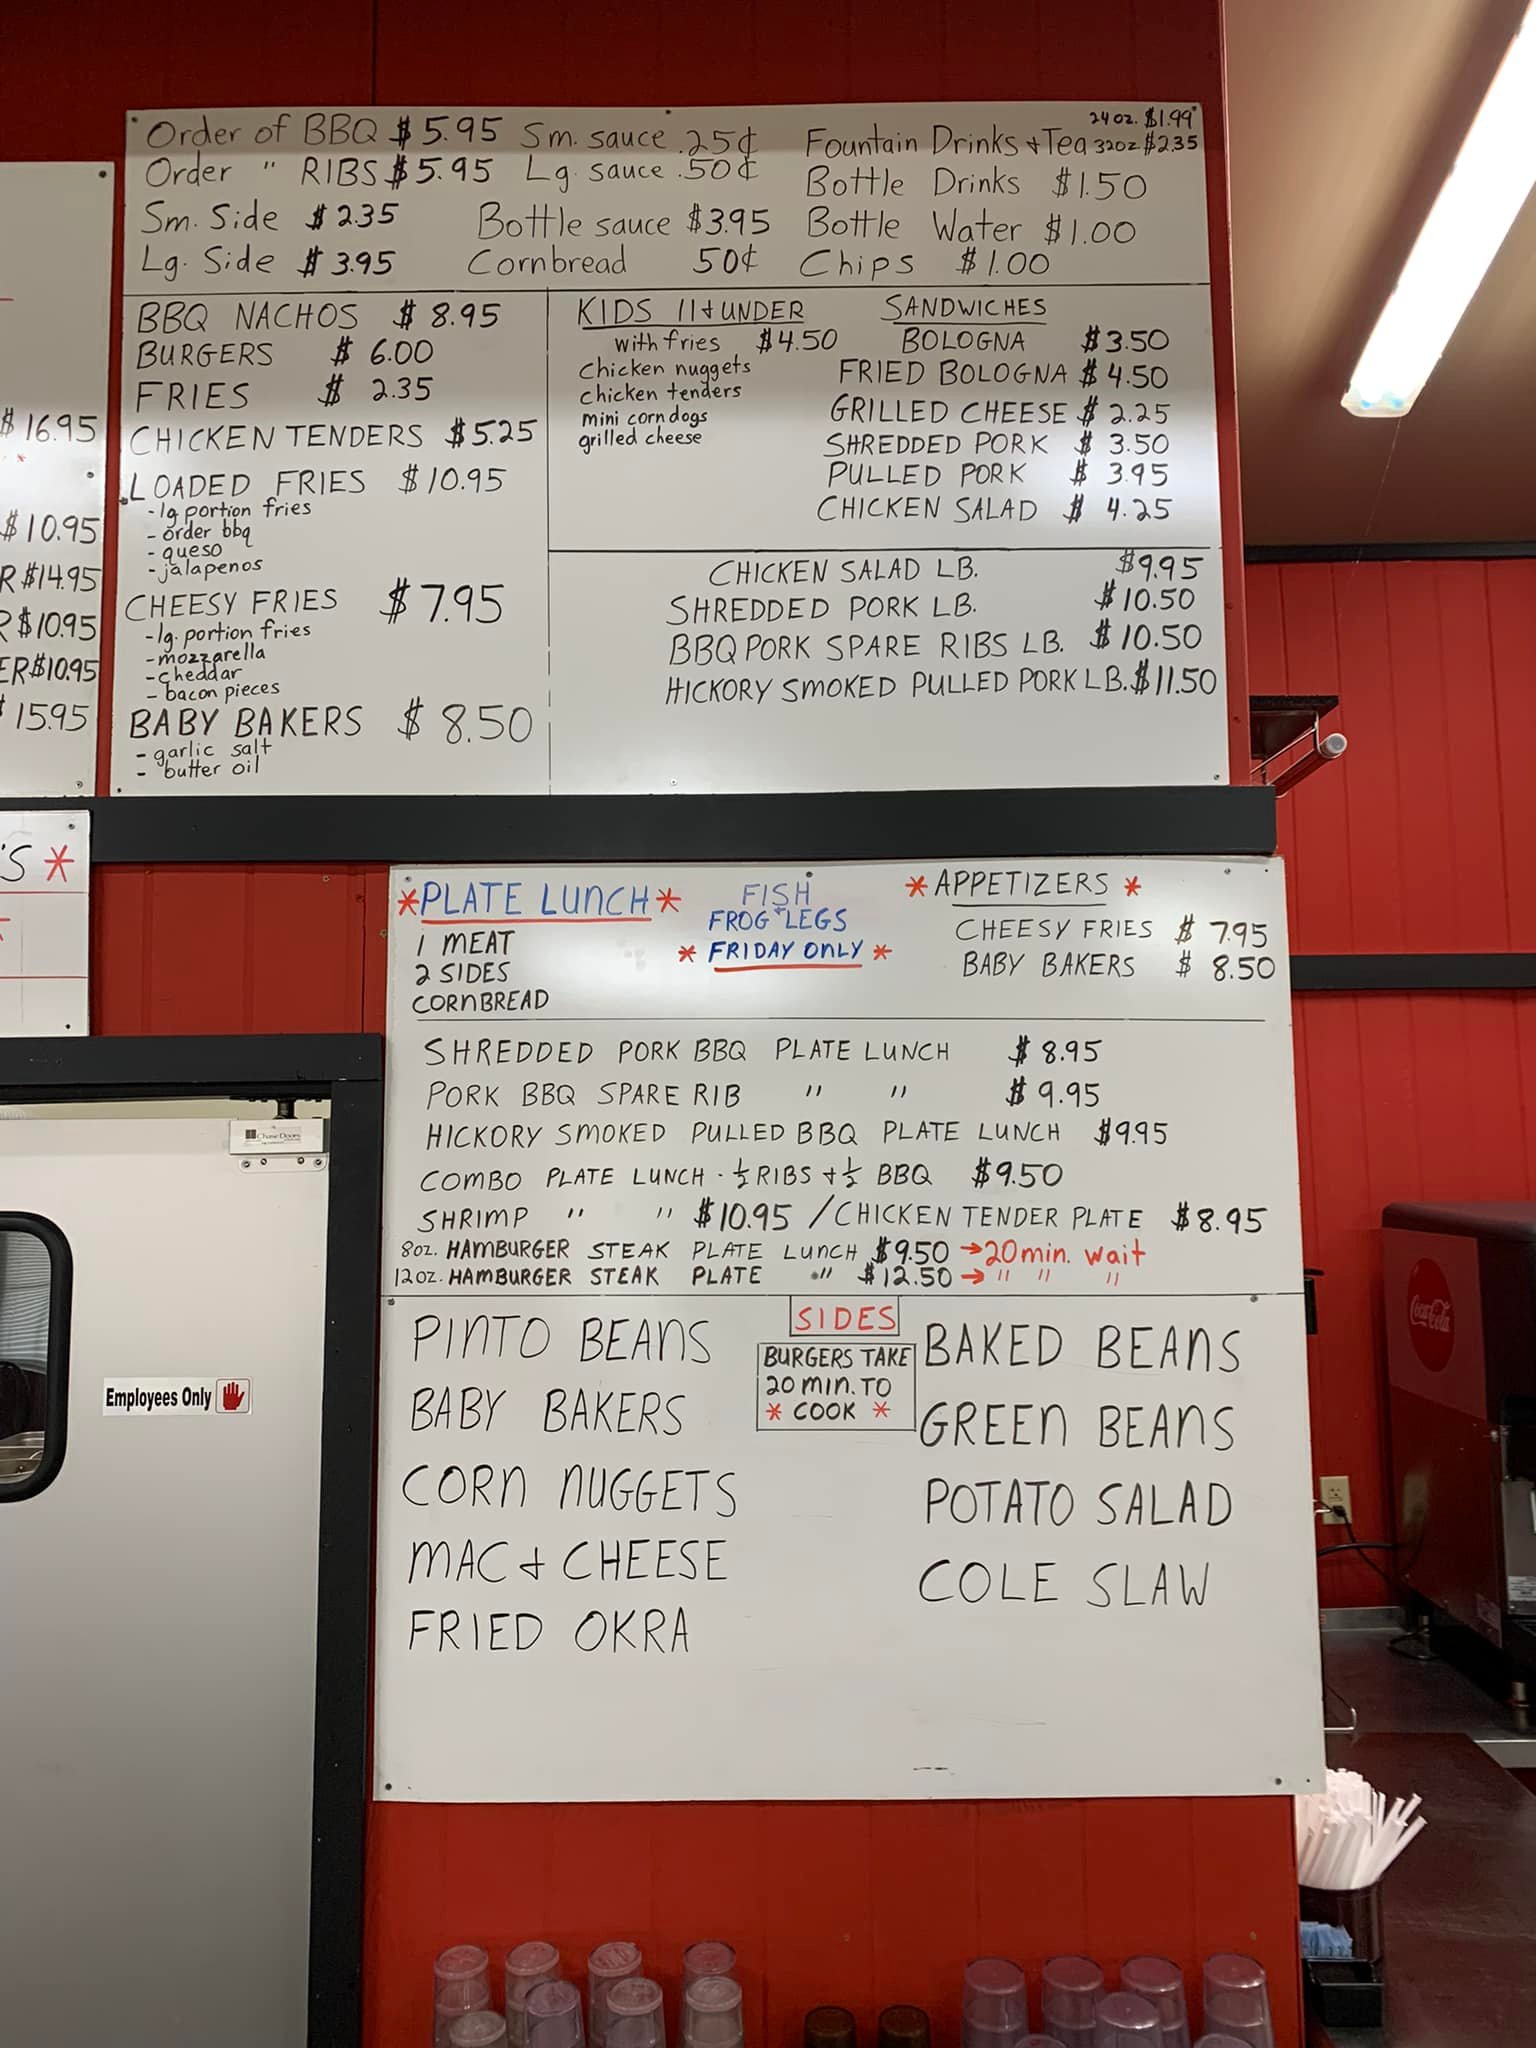 Order of BBQ $5.95 Sm. sauce .25¢ Fountain Drinks + Tea 24oz. $1.99 32oz $2.35
Order " RIBS $5.95 Lg. sauce .50¢ Bottle Drinks $1.50
Sm. Side $2.35 Bottle sauce $3.95 Bottle Water $1.00
Lg. Side $3.95 Cornbread 50¢ Chips $1.00
BBQ NACHOS $8.95
BURGERS $6.00
FRIES $2.35
CHICKEN TENDERS $5.25
LOADED FRIES $10.95
-lg portion fries
- order bbq
- queso
- jalapenos
CHEESY FRIES $7.95
-lg. portion fries
-mozzarella
-cheddar
- bacon pieces
BABY BAKERS $8.50
- garlic salt
- butter oil
KIDS 11+UNDER
with fries $4.50
chicken nuggets
chicken tenders
mini corndogs
grilled cheese
SANDWICHES
BOLOGNA $3.50
FRIED BOLOGNA $4.50
GRILLED CHEESE $2.25
SHREDDED PORK $3.50
PULLED PORK $3.95
CHICKEN SALAD $4.25
CHICKEN SALAD LB. $9.95
SHREDDED PORK LB. $10.50
BBQ PORK SPARE RIBS LB. $10.50
HICKORY SMOKED PULLED PORK LB. $11.50
$16.95
*
$10.95
R $14.95
R $10.95
ER $10.95
$15.95
'S *
*PLATE LUNCH*
1 MEAT
2 SIDES
CORNBREAD
FISH
+
FROG LEGS
* FRIDAY ONLY *
* APPETIZERS *
CHEESY FRIES $7.95
BABY BAKERS $8.50
SHREDDED PORK BBQ PLATE LUNCH $8.95
PORK BBQ SPARE RIB " " $9.95
HICKORY SMOKED PULLED BBQ PLATE LUNCH $9.95
COMBO PLATE LUNCH - ½ RIBS + ½ BBQ $9.50
SHRIMP " " $10.95 / CHICKEN TENDER PLATE $8.95
8oz. HAMBURGER STEAK PLATE LUNCH $9.50 → 20 min. wait
12oz. HAMBURGER STEAK PLATE " $12.50 → " " "
SIDES
BURGERS TAKE
20 MIN. TO
* COOK *
PINTO BEANS
BABY BAKERS
CORN NUGGETS
MAC + CHEESE
FRIED OKRA
BAKED BEANS
GREEN BEANS
POTATO SALAD
COLE SLAW
Chase Doors
Employees Only
Coca-Cola